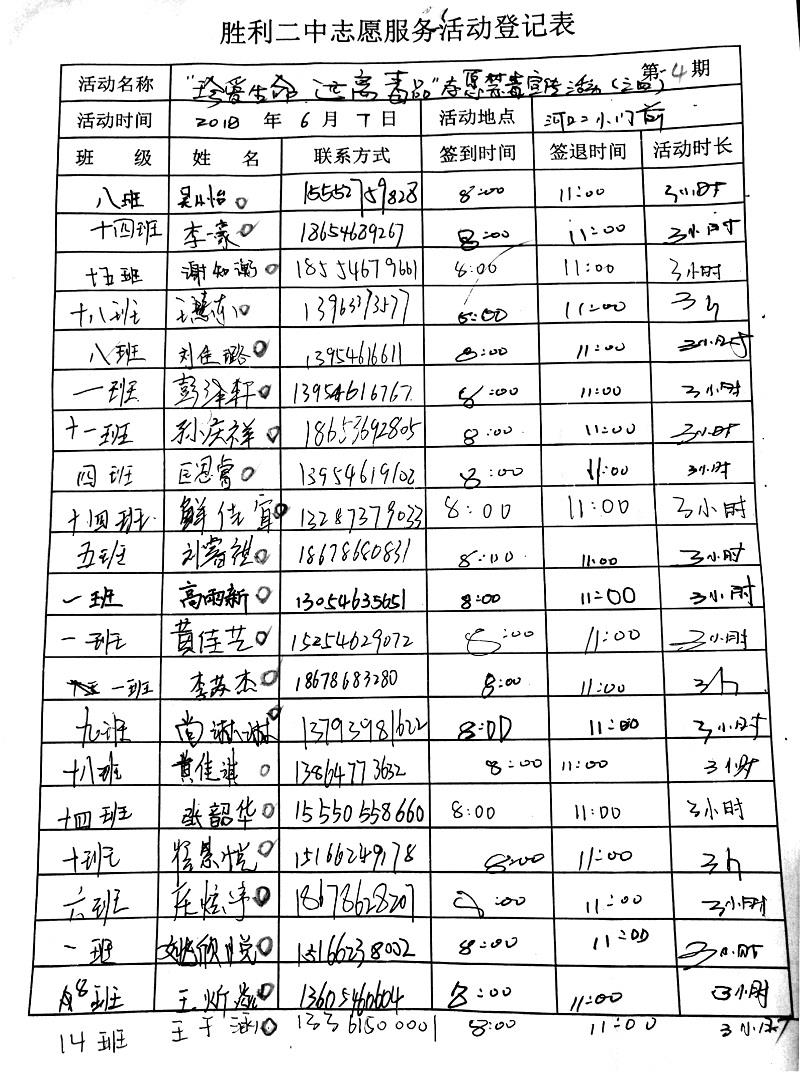 胜利二中志愿服务活动登记表
活动名称 "珍爱生命 远离毒品"志愿禁毒宣传活动(之四) 第4期
活动时间 2018 年 6 月 7 日 活动地点 河口小门前
班 级 姓 名 联系方式 签到时间 签退时间 活动时长
八班 15552759828 8:00 11:00 3小时
十四班 李一豪 18654689267 8:00 11:00 3小时
十五班 谢知衡 18554679661 8:00 11:00 3小时
十八班 王慧东 13963373577 8:00 11:00 3h
八班 刘佳璐 13954616611 8:00 11:00 3小时
一班 彭泽轩 13954616767 8:00 11:00 3小时
十一班 孙庆祥 18653692805 8:00 11:00 3小时
四班 巨恩睿 13954619102 8:00 11:00 3小时
十四班 鲜佳宜 13287379033 8:00 11:00 3小时
五班 刘睿祺 18678680831 8:00 11:00 3小时
一班 高雨新 13054635651 8:00 11:00 3小时
一班 黄佳艺 15254629072 8:00 11:00 3小时
一班 李苏杰 18678683280 8:00 11:00 3h
九班 尚淑淑 13793981622 8:00 11:00 3小时
十八班 黄佳琪 13864773632 8:00 11:00 3小时
十四班 张韶华 15550558660 8:00 11:00 3小时
十班 15166249178 8:00 11:00 3h
六班 18678628207 8:00 11:00 3小时
一班 姚欣悦 15166238002 8:00 11:00 3小时
8班 王炘 13605460604 8:00 11:00 3小时
14班 王于涵 13361500001 8:00 11:00 3小时